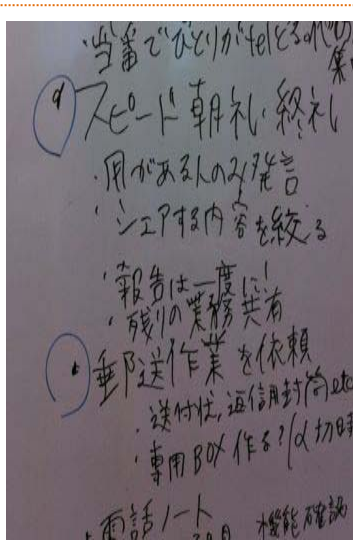 ・当番でひとりがtelとる
スピード朝礼・終礼
・用がある人のみ発言
・シェアする内容を絞る
・報告は一度に!
・残りの業務共有
郵送作業を依頼
・送付状,返信用封筒etc
・専用BOX作る?
・電話ノート
機能確認